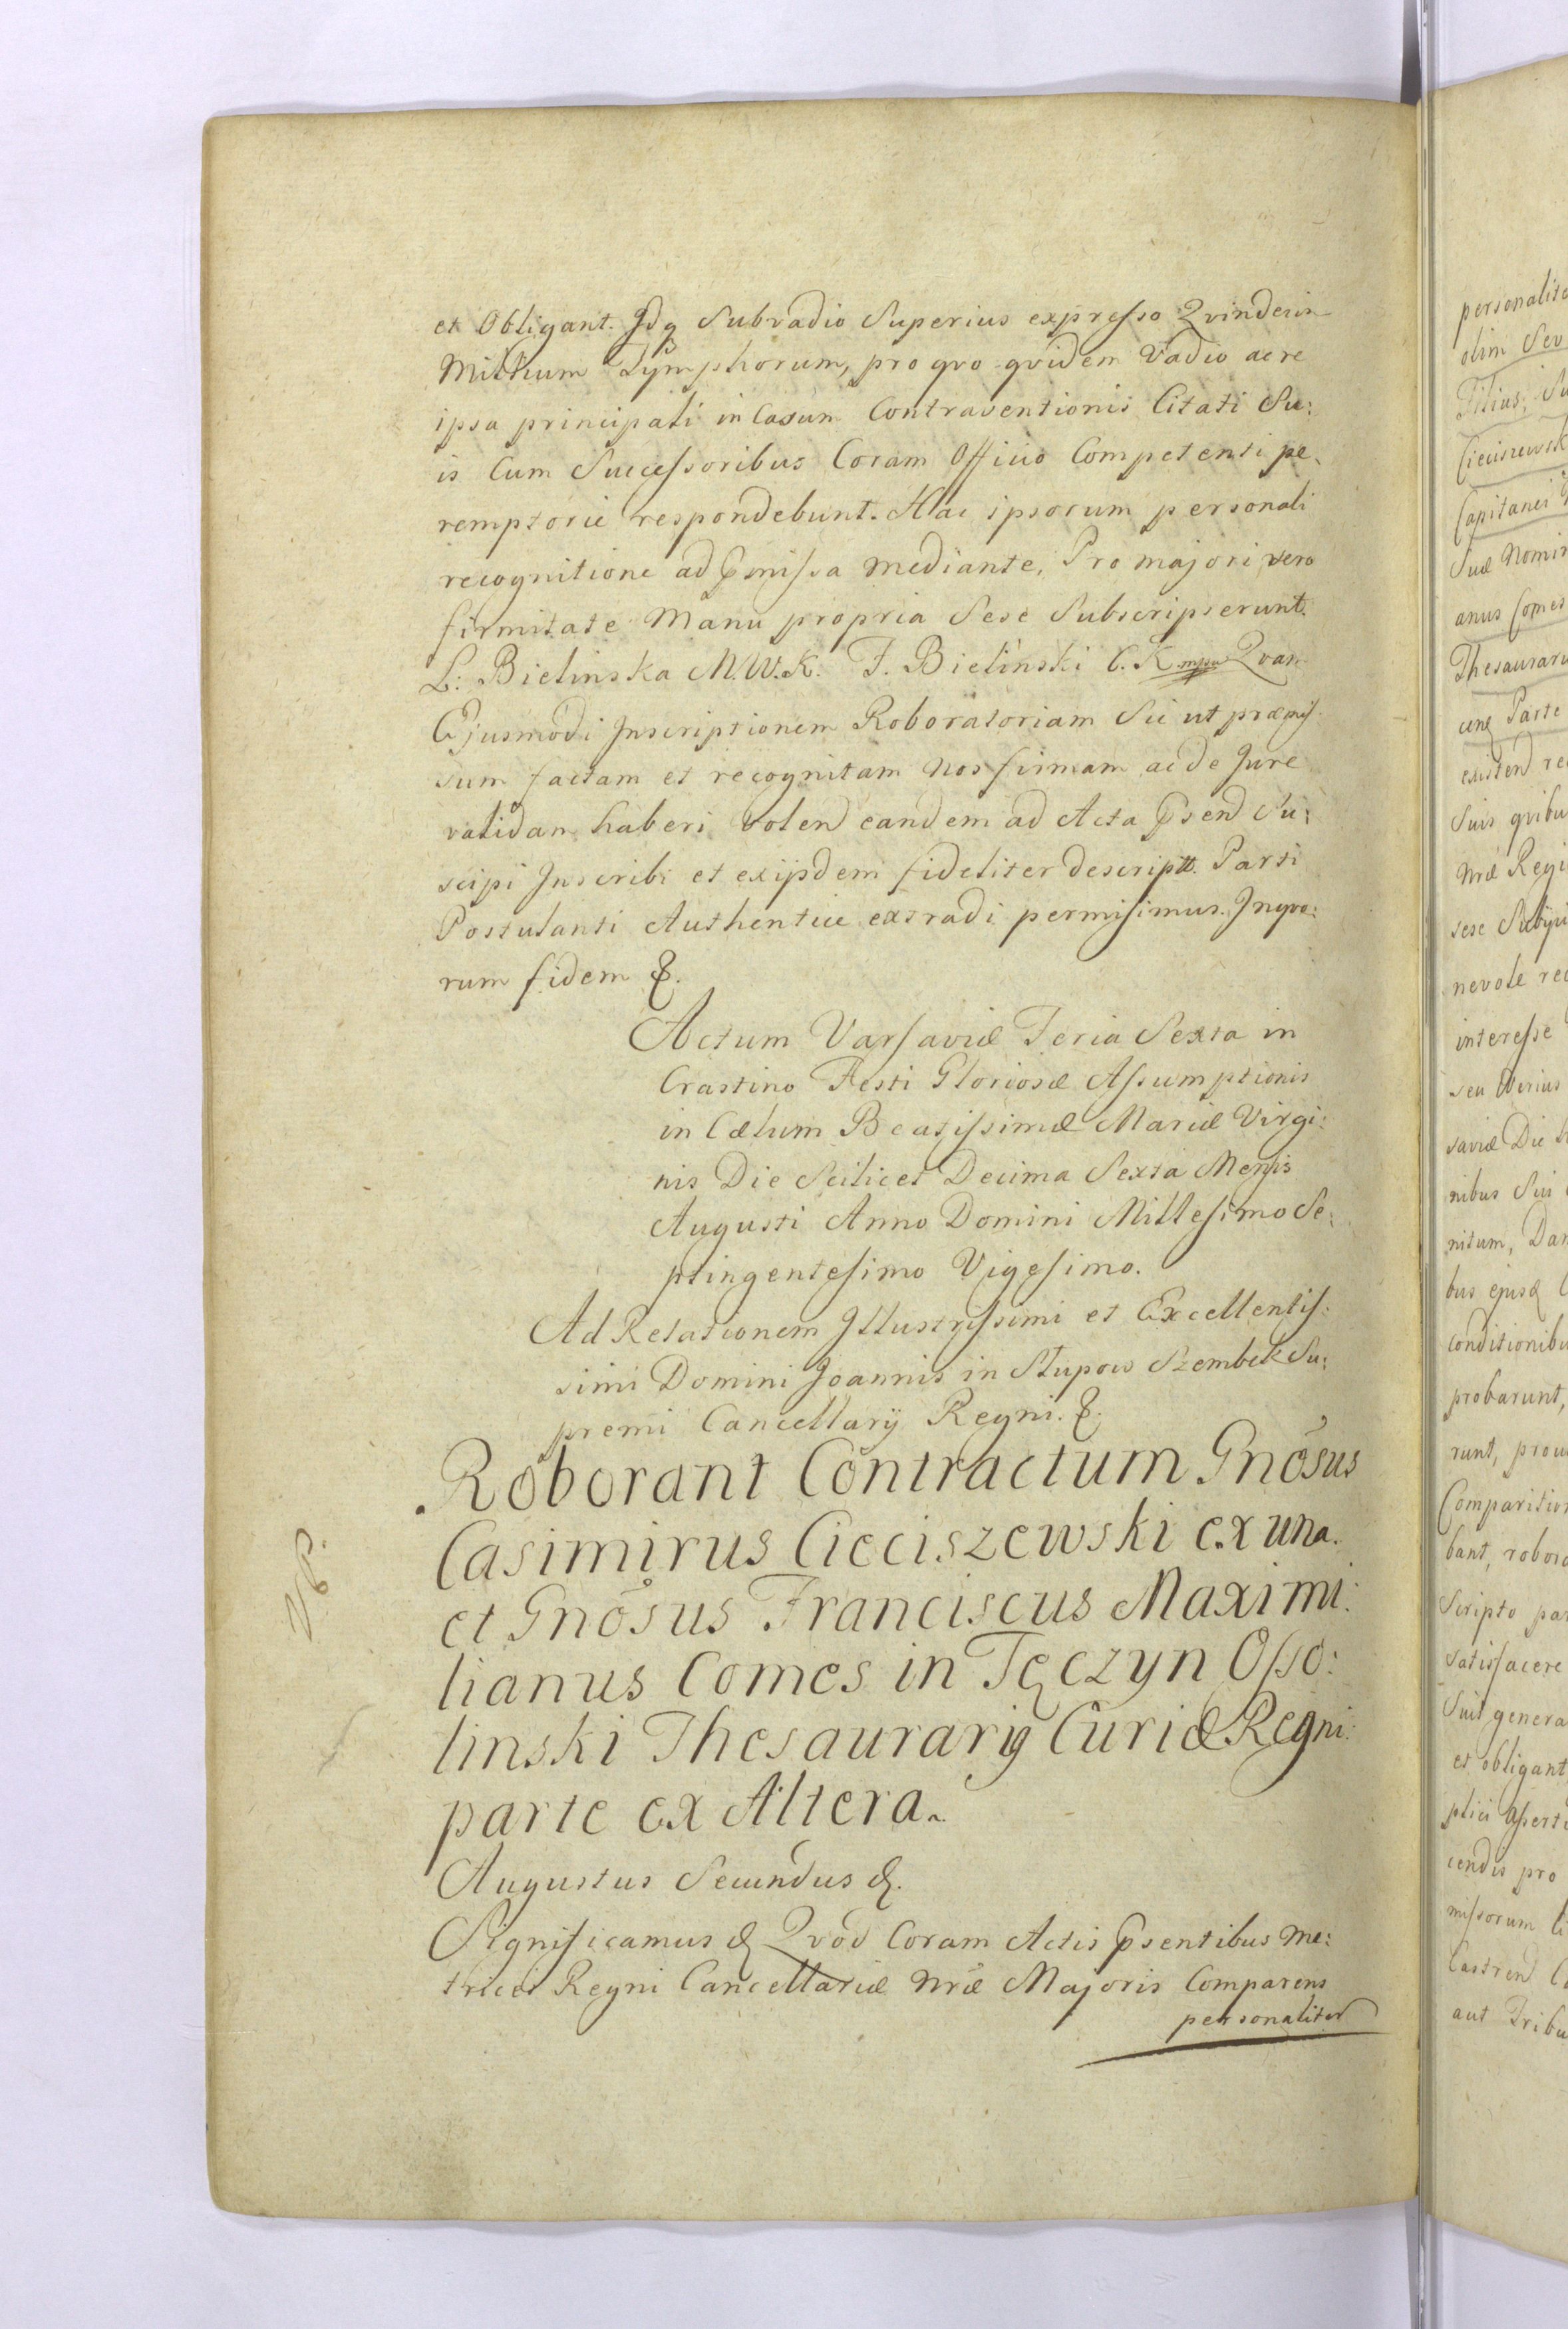 et Obligant. Idq Subvadio Superius expresso Qvindecim
Millium Tymphorum, pro qvo qvidem Vadio ac re
ipsa principali in Casum Contraventionis Citati Su:
is Cum Successoribus Coram Officio Competenti pe
remptorie respondebunt. Hac ipsorum personali
recognitione ad pmissa mediante, Pro majori vero
firmitate Manu propria Sese Subscripserunt.
L: Bielinska M.W.K. F. Bielinski C. K mpa Qvam
Ejusmodi Inscriptionem Roboratoriam Sic ut præmis:
sum factam et recognitam nos firmam ac de Jure
validam haberi volen eandem ad Acta psen Su:
scipi Inscribi et exijsdem fideliter descriptt. Parti
Postulanti Authentice extradi permisimus. Inqvo:
rum fidem &.
Actum Varsaviæ Feria Sexta in
Crastino Festi Gloriosæ Assumptionis
in Cælum Beatissimæ Mariæ Virgi:
nis Die Scilicet Decima Sexta Mensis
Augusti Anno Domini Millesimo Se:
ptingentesimo Vigesimo.
Ad Relationem Illustrissimi et Excellentis:
simi Domini Joannis in Słupow Szembek Su:
premi Cancellarij Regni. &.
Roborant Contractum Gnosus
Casimirus Cieciszewski ex una.
et Gnosus Franciscus Maximi:
lianus Comes in Tęczyn Osso:
linski Thesaurarig Curiæ Regni:
parte ex Altera.
Augustus Secundus &.
Significamus & Qvod Coram Actis psentibus Me:
trices Regni Cancellariæ nræ Majoris Comparens
personaliter
personalite
olim Sev
Filius, Su
Cieciszewsk
Capitanei
Suæ Nomin
anus Comes
Thesaurari
Parte
existen re
Suis qvibu
nræ Regi
sese Subijci
nevole rec
interesse
seu Verius
saviæ Die
nibus Suis
nitum, Dan
bus ejusd
conditionibu
probarunt,
runt, prou
Comparition
bant, robora
Scripto par
satisfacere
Suis genera
et obligant
plici Aserti
cendis pro
missorum
Castren
aut Tribu